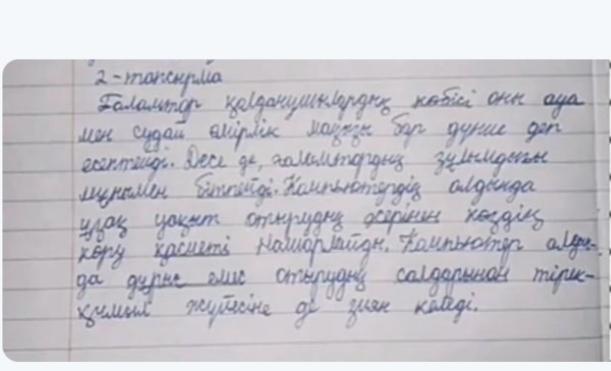 2-тапсырма
Ғаламтор қолданушылардың көбісі оны ауа
мен судай өмірлік маңызы бар дүние деп
есептейді. Десе де, ғаламтордың зұлымдығы
мұнымен бітпейді. Компьютердің алдында
ұзақ уақыт отырудың әсерінен көздің
көру қасиеті нашарлайды. Компьютер алдын-
да дұрыс емес отырудың салдарынан тірек-
қимыл жүйесіне де зиян келеді.